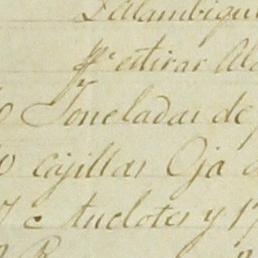 Alambique
pa. estirar Al
Toneladas de
cajillas Oja d
7 c Anclotes y 17